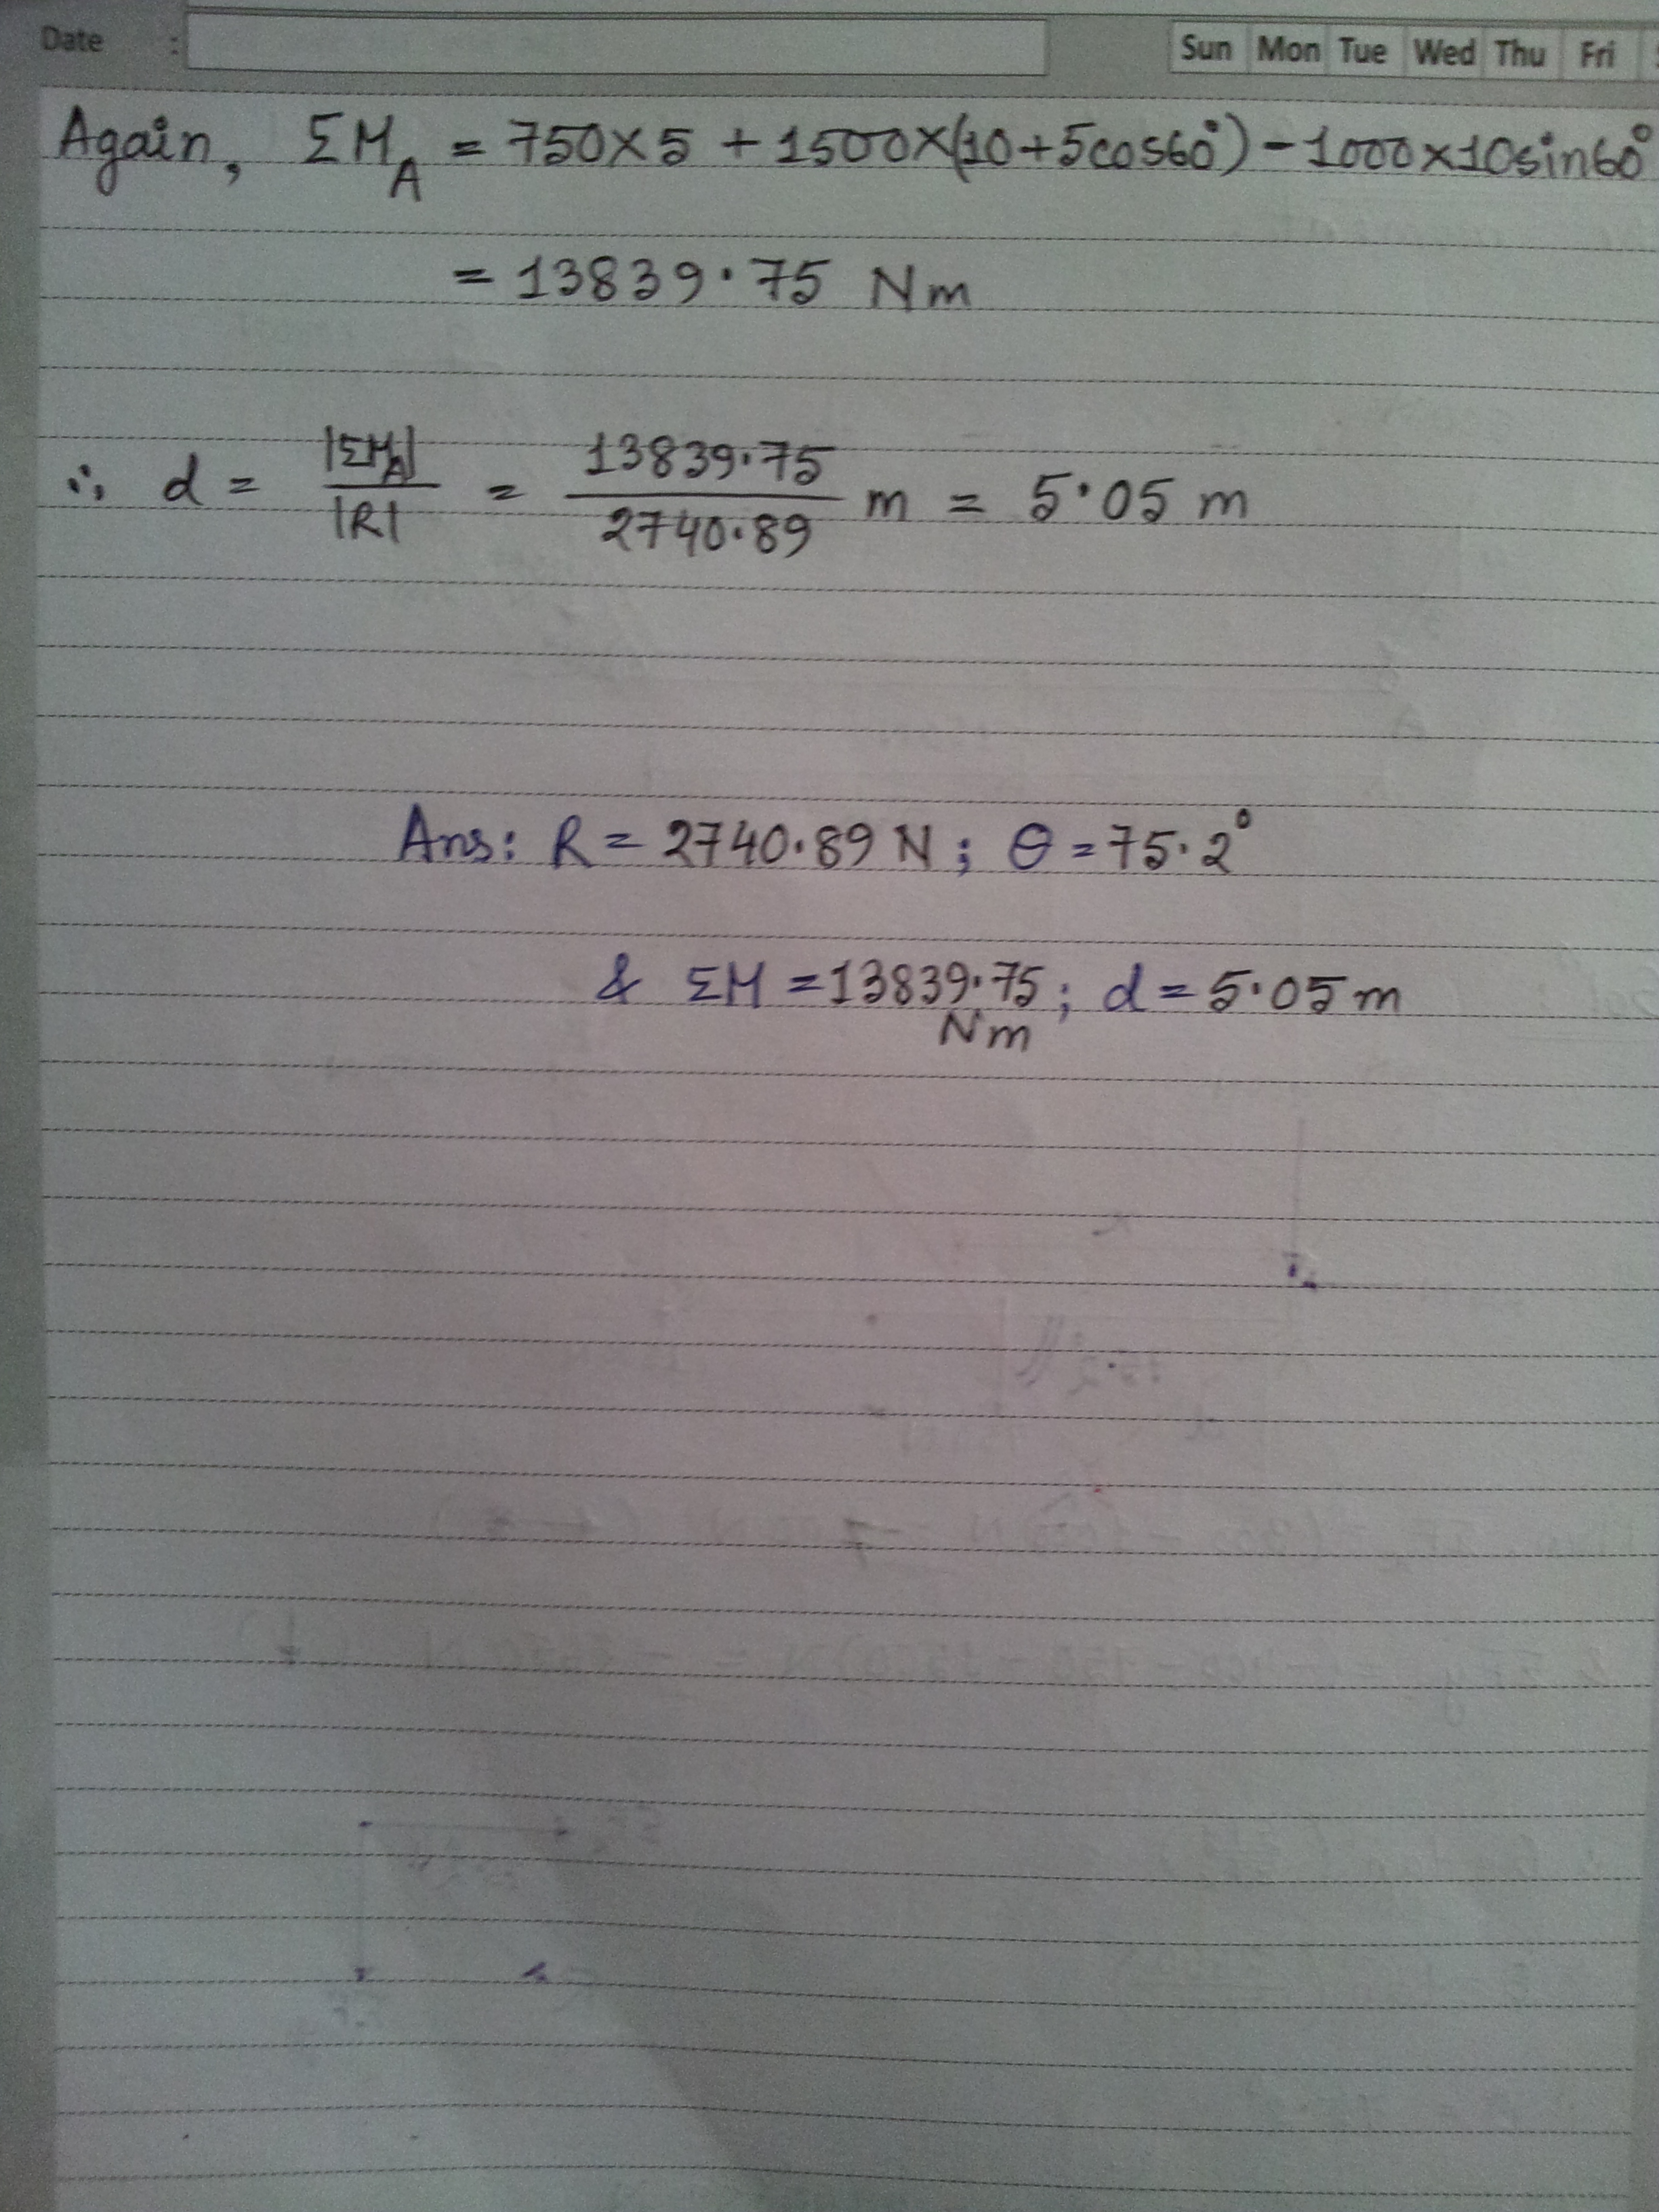 Date :
Sun Mon Tue Wed Thu Fri
Again, ΣM_A = 750×5 + 1500×(10+5cos60°) - 1000×10sin60°
= 13839.75 Nm
∴ d = |ΣM_A| / |R| = 13839.75 / 2740.89 m = 5.05 m
Ans: R = 2740.89 N ; θ = 75.2°
& ΣM = 13839.75 Nm ; d = 5.05 m